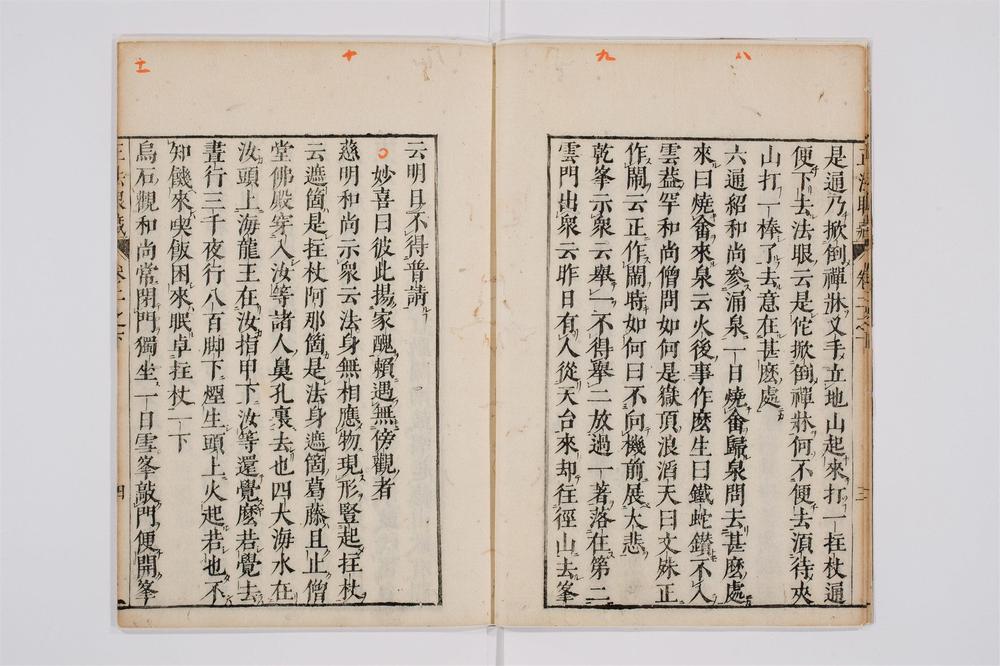 八
九
是通乃掀倒禪牀叉手立地山起來打一拄杖通
便下去法眼云是佗掀倒禪牀何不便去須待夾
山打一棒了去意在甚麽處
六通紹和尚參涌泉一日燒畬歸泉問去甚麽處
來曰燒畬來泉云火後事作麽生曰鐵蛇鑽不入
雲葢罕和尚僧問如何是嶽頂浪滔天曰文殊正
作鬧云正作鬧時如何曰不向機前展大悲
乾峯示衆云舉一不得舉二放過一著落在第二
雲門出衆云昨日有人從天台來却往徑山去峯
十
十一
云明日不得普請
妙喜曰彼此揚家醜賴遇無傍觀者
慈明和尚示衆云法身無相應物現形竪起拄杖
云遮箇是拄杖阿那箇是法身遮箇葛藤且止僧
堂佛殿穿入汝等諸人鼻孔裏去也四大海水在
汝頭上海龍王在汝指甲下汝等還覺麽若覺去
晝行三千夜行八百脚下煙生頭上火起若也不
知饑來喫飯困來眠卓拄杖一下
烏石觀和尚常閉門獨坐一日雪峯敲門便開峯
四